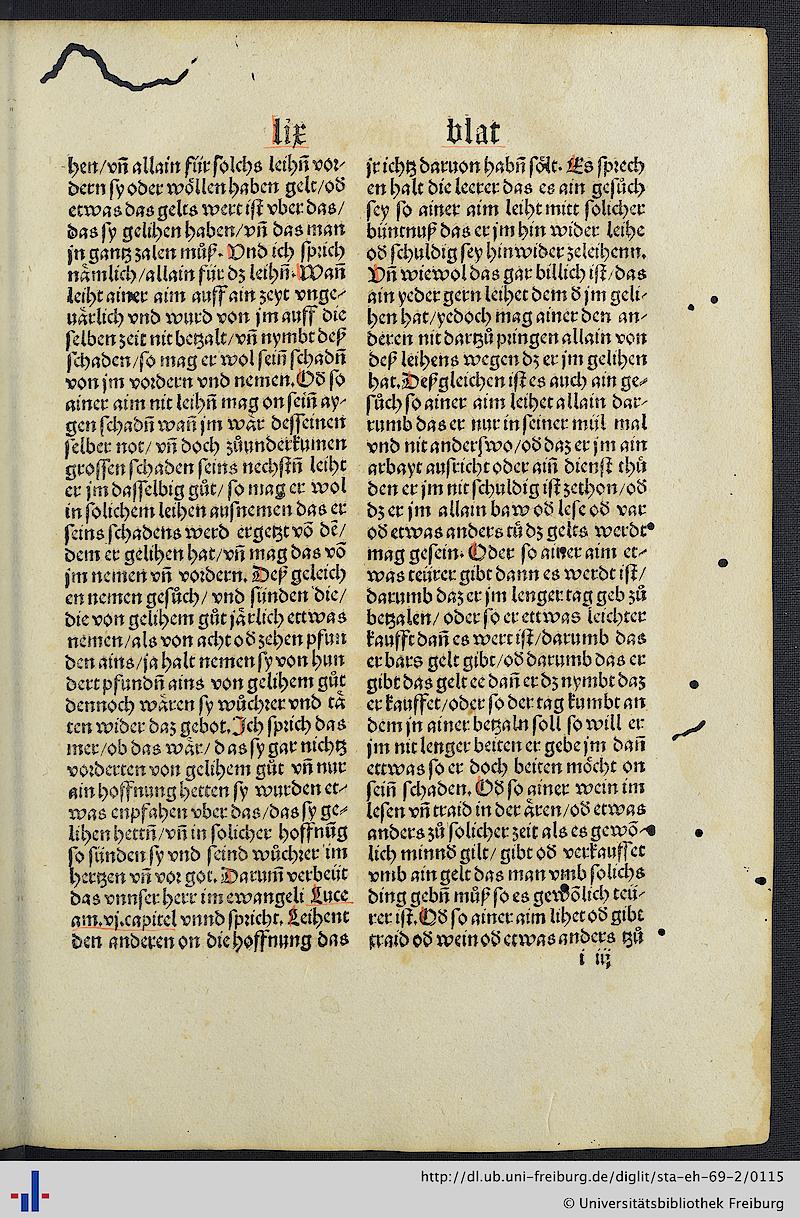 lix blat
hen/vn̄ allain für solchs leihn̄ vor-
dern sy oder wöllen haben gelt/od̄
etwas das gelts wert ist vber das/
das sy gelihen haben/vn̄ das man
jn gantz zalen můß. Vnd ich sprich
nämlich/allain für dz leihn̄. Wan̄
leiht ainer aim auff ain zeyt vnge-
uärlich vnd wurd von jm auff die
selben zeit nit betzalt/vn̄ nymbt deß
schaden/so mag er wol sein̄ schadn̄
von jm vordern vnd nemen. Od̄ so
ainer aim nit leihn̄ mag on sein̄ ay-
gen schadn̄ wan̄ jm wär desseinen
selber not/vn̄ doch zůunderkumen
grossen schaden seins nechstn̄ leiht
er jm dasselbig gůt/so mag er wol
in solichem leihen ausnemen das er
seins schadens werd ergetzt vō dē/
dem er gelihen hat/vn̄ mag das vō
jm nemen vn̄ vordern. Deß geleich
en nemen gesůch/vnd sünden die/
die von gelihem gůt järlich ettwas
nemen/als von acht od̄ zehen pfun
den ains/ja halt nemen sy von hun
dert pfundn̄ ains von gelihem gůt
dennoch wären sy wůchrer vnd tä
ten wider daz gebot. Ich sprich das
mer/ob das wär/das sy gar nichtz
vorderten von gelihem gůt vn̄ nur
ain hoffnung hetten sy wurden et-
was enpfahen vber das/das sy ge-
lihen hettn̄/vn̄ in solicher hoffnūg
so sünden sy vnd seind wůchrer im
hertzen vn̄ vor got. Darum̄ verbeüt
das vnnser herr im ewangeli Luce
am.vj.capitel vnnd spricht. Leihent
den anderen on die hoffnung das
jr ichtz daruon habn̄ sölt. Es sprech
en halt die leerer das es ain gesůch
sey so ainer aim leiht mitt solicher
büntnuß das er jm hin wider leihe
od̄ schuldig sey hinwider zeleihenn.
Vn̄ wiewol das gar billich ist/das
ain yeder gern leihet dem d̄ jm geli-
hen hat/yedoch mag ainer den an-
deren nit dartzů pringen allain von
deß leihens wegen dz er jm gelihen
hat. Deßgleichen ist es auch ain ge-
sůch so ainer aim leihet allain dar-
rumb das er nur in seiner mül mal
vnd nit anderswo/od̄ daz er jm ain
arbayt ausricht oder ain̄ dienst thů
den er jm nit schuldig ist zethon/od̄
dz er jm allain baw od̄ lese od̄ var
od̄ etwas anders tů dz gelts werdt
mag gesein. Oder so ainer aim et-
was teürer gibt dann es werdt ist/
darumb daz er jm lenger tag geb zů
betzalen/oder so er ettwas leichter
kaufft dan̄ es wert ist/darumb das
er bars gelt gibt/od̄ darumb das er
gibt das gelt ee dan̄ er dz nymbt daz
er kauffet/oder so der tag kumbt an
dem jn ainer betzaln soll so will er
jm nit lenger beiten er gebe jm dan̄
ettwas so er doch beiten möcht on
sein̄ schaden. Od̄ so ainer wein im
lesen vn̄ traid in der ären/od̄ etwas
anders zů solicher zeit als es gewō-
lich minnd̄ gilt/gibt od̄ verkauffet
vmb ain gelt das man vmb solichs
ding gebn̄ můß so es gewōlich teü-
rer ist. Od̄ so ainer aim lihet od̄ gibt
traid od̄ wein od̄ etwas anders tzů
i iij
http://dl.ub.uni-freiburg.de/diglit/sta-eh-69-2/0115
© Universitätsbibliothek Freiburg